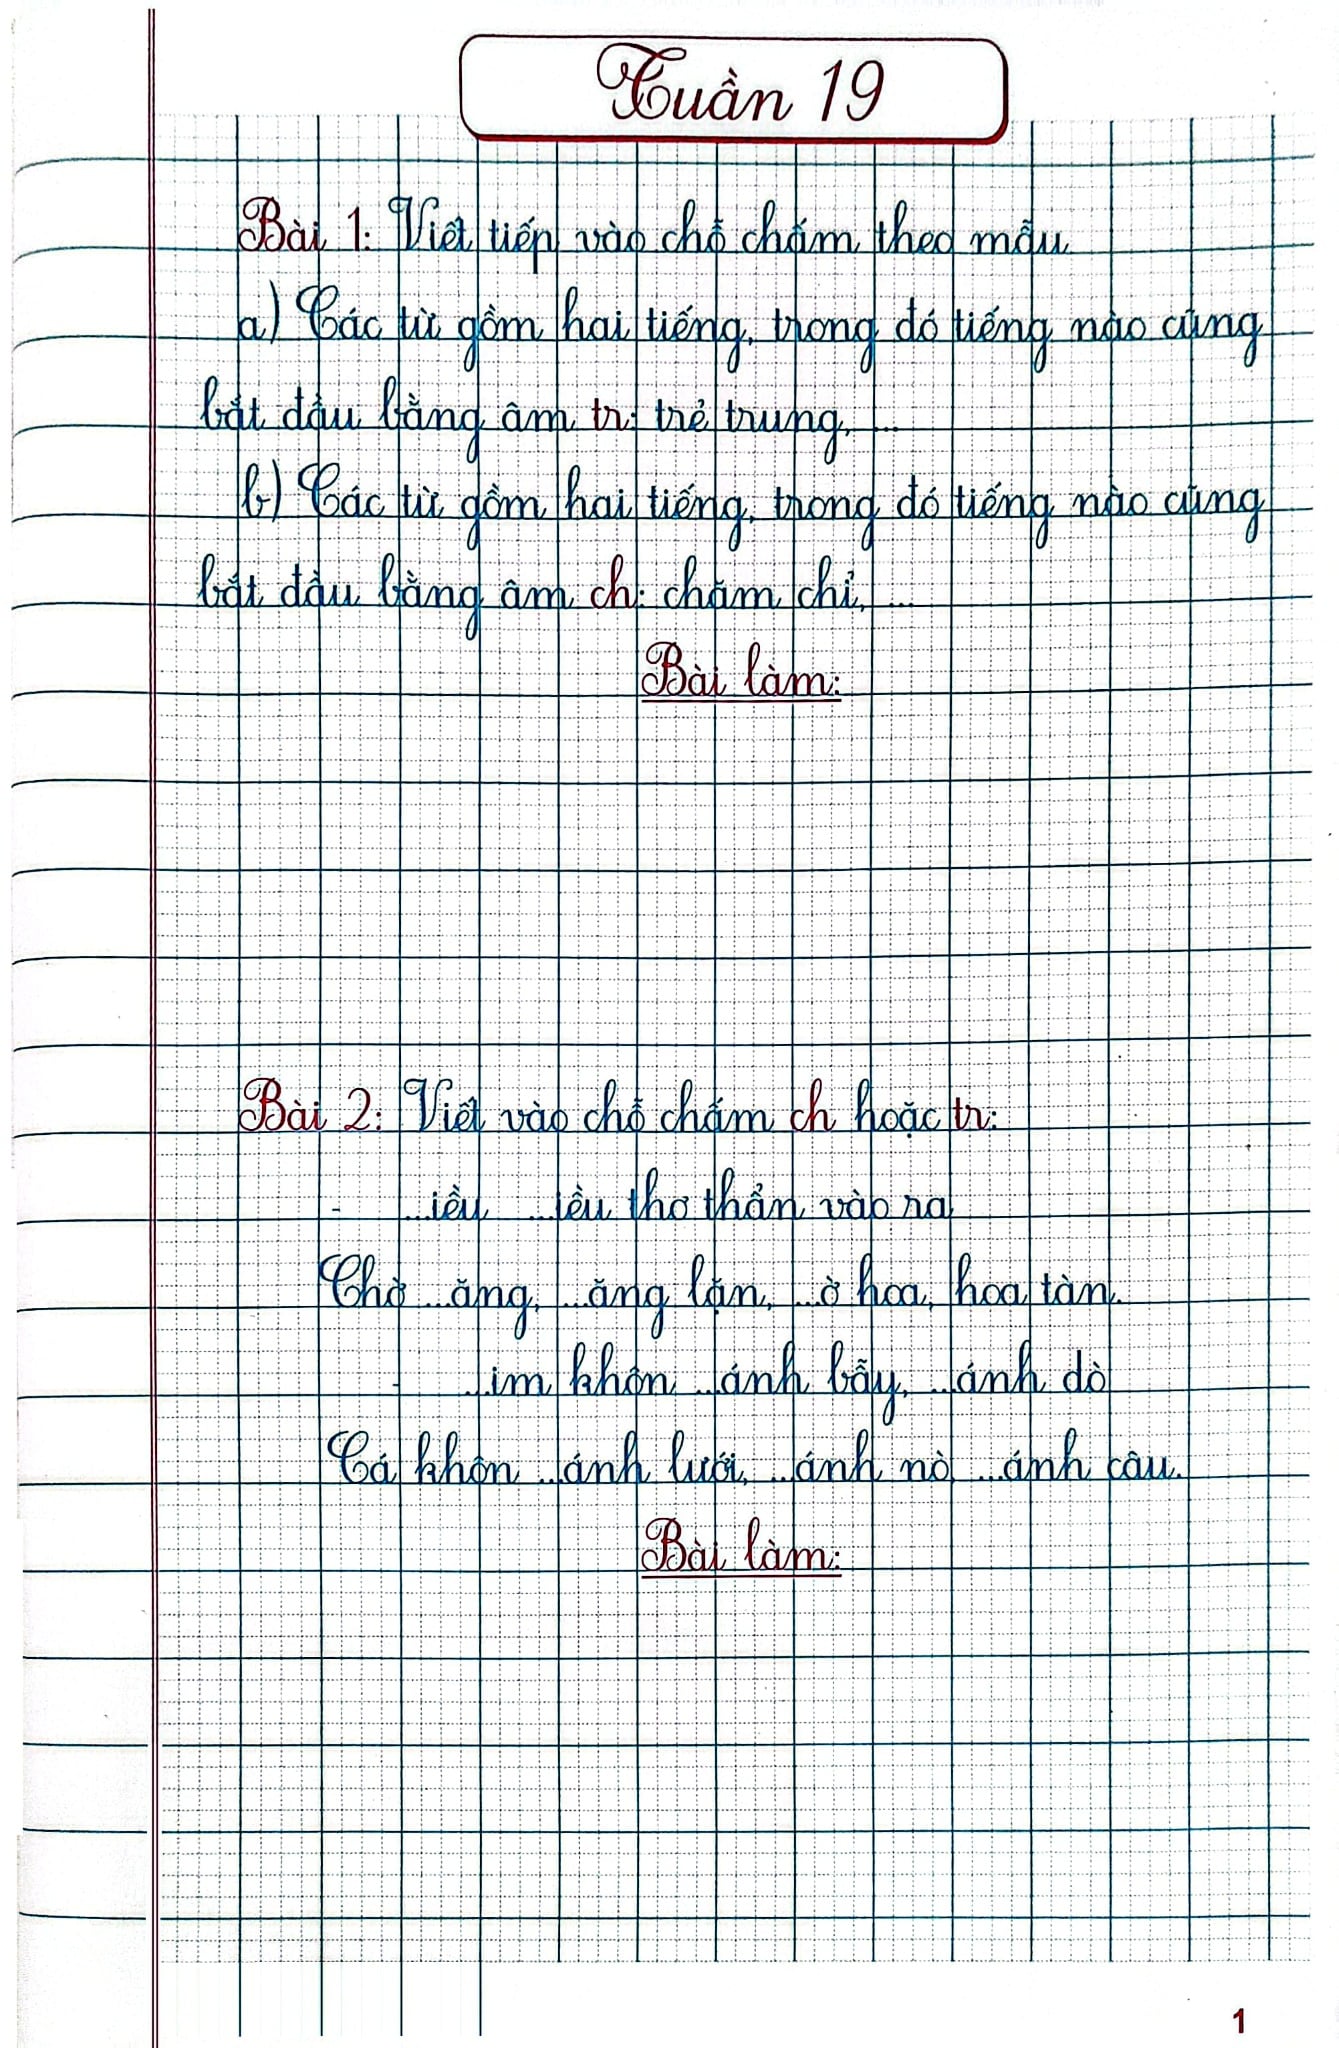 Tuần 19
Bài 1: Viết tiếp vào chỗ chấm theo mẫu
a) Các từ gồm hai tiếng, trong đó tiếng nào cũng
bắt đầu bằng âm tr: trẻ trung, ...
b) Các từ gồm hai tiếng, trong đó tiếng nào cũng
bắt đầu bằng âm ch: chăm chỉ, ...
Bài làm:
Bài 2: Viết vào chỗ chấm ch hoặc tr:
- ...iều ...iều thơ thẩn vào ra
Chờ ...ăng, ...ăng lặn, ...ờ hoa, hoa tàn.
- ...im khôn ...ánh bẫy, ...ánh dò
Cá khôn ...ánh lưới, ...ánh nò ...ánh câu.
Bài làm:
1